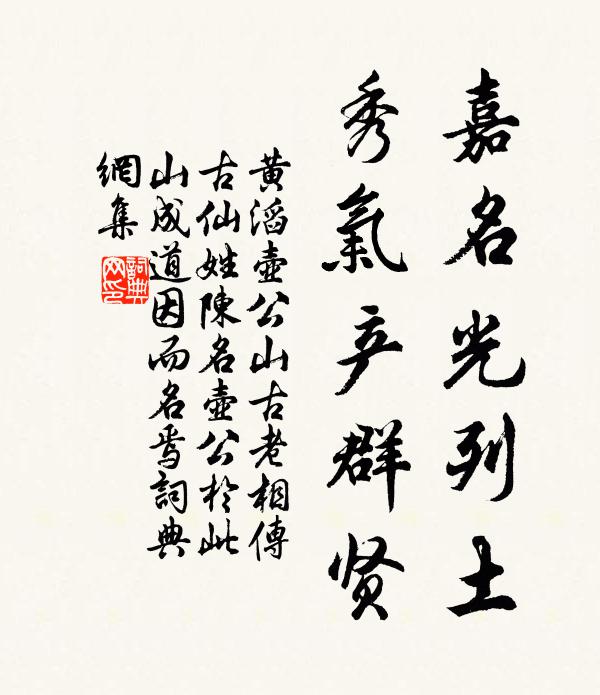 嘉名光列土
秀氣产群贤
黄滔壺公山古老相傳
古仙姓陳名壺公於此
山成道因而名焉詞典
網集
詞典網印